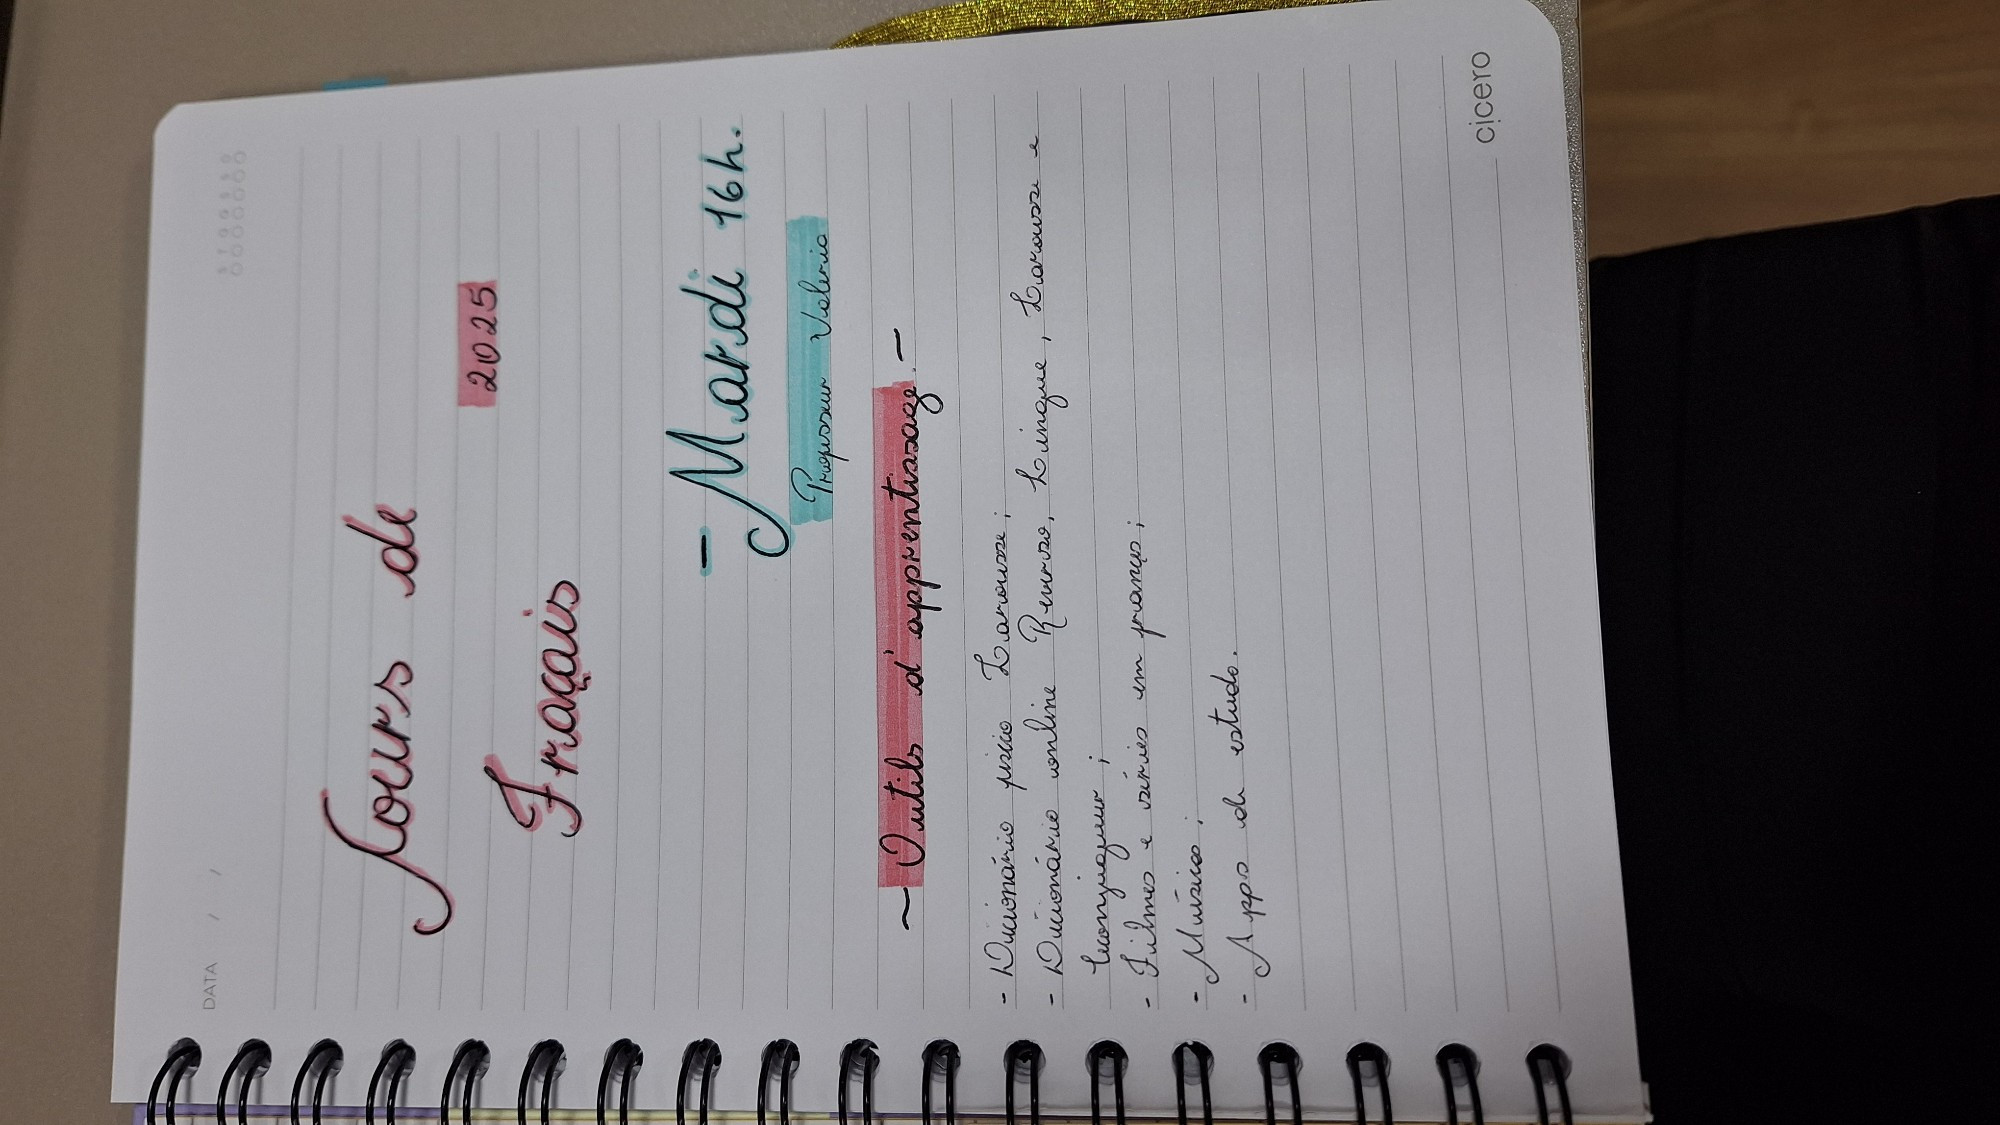 DATA / /
Cours de
2025
Fraçais
- Mardi 16h.
Professeur Valeria
~ Outils d'apprentissage. -
- Dicionário físico Larousse;
- Dicionário online Reverso, Lingue, Larousse e
Conjugueur;
- Filmes e séries em françes;
- Música;
- Apps de estudo.
cicero